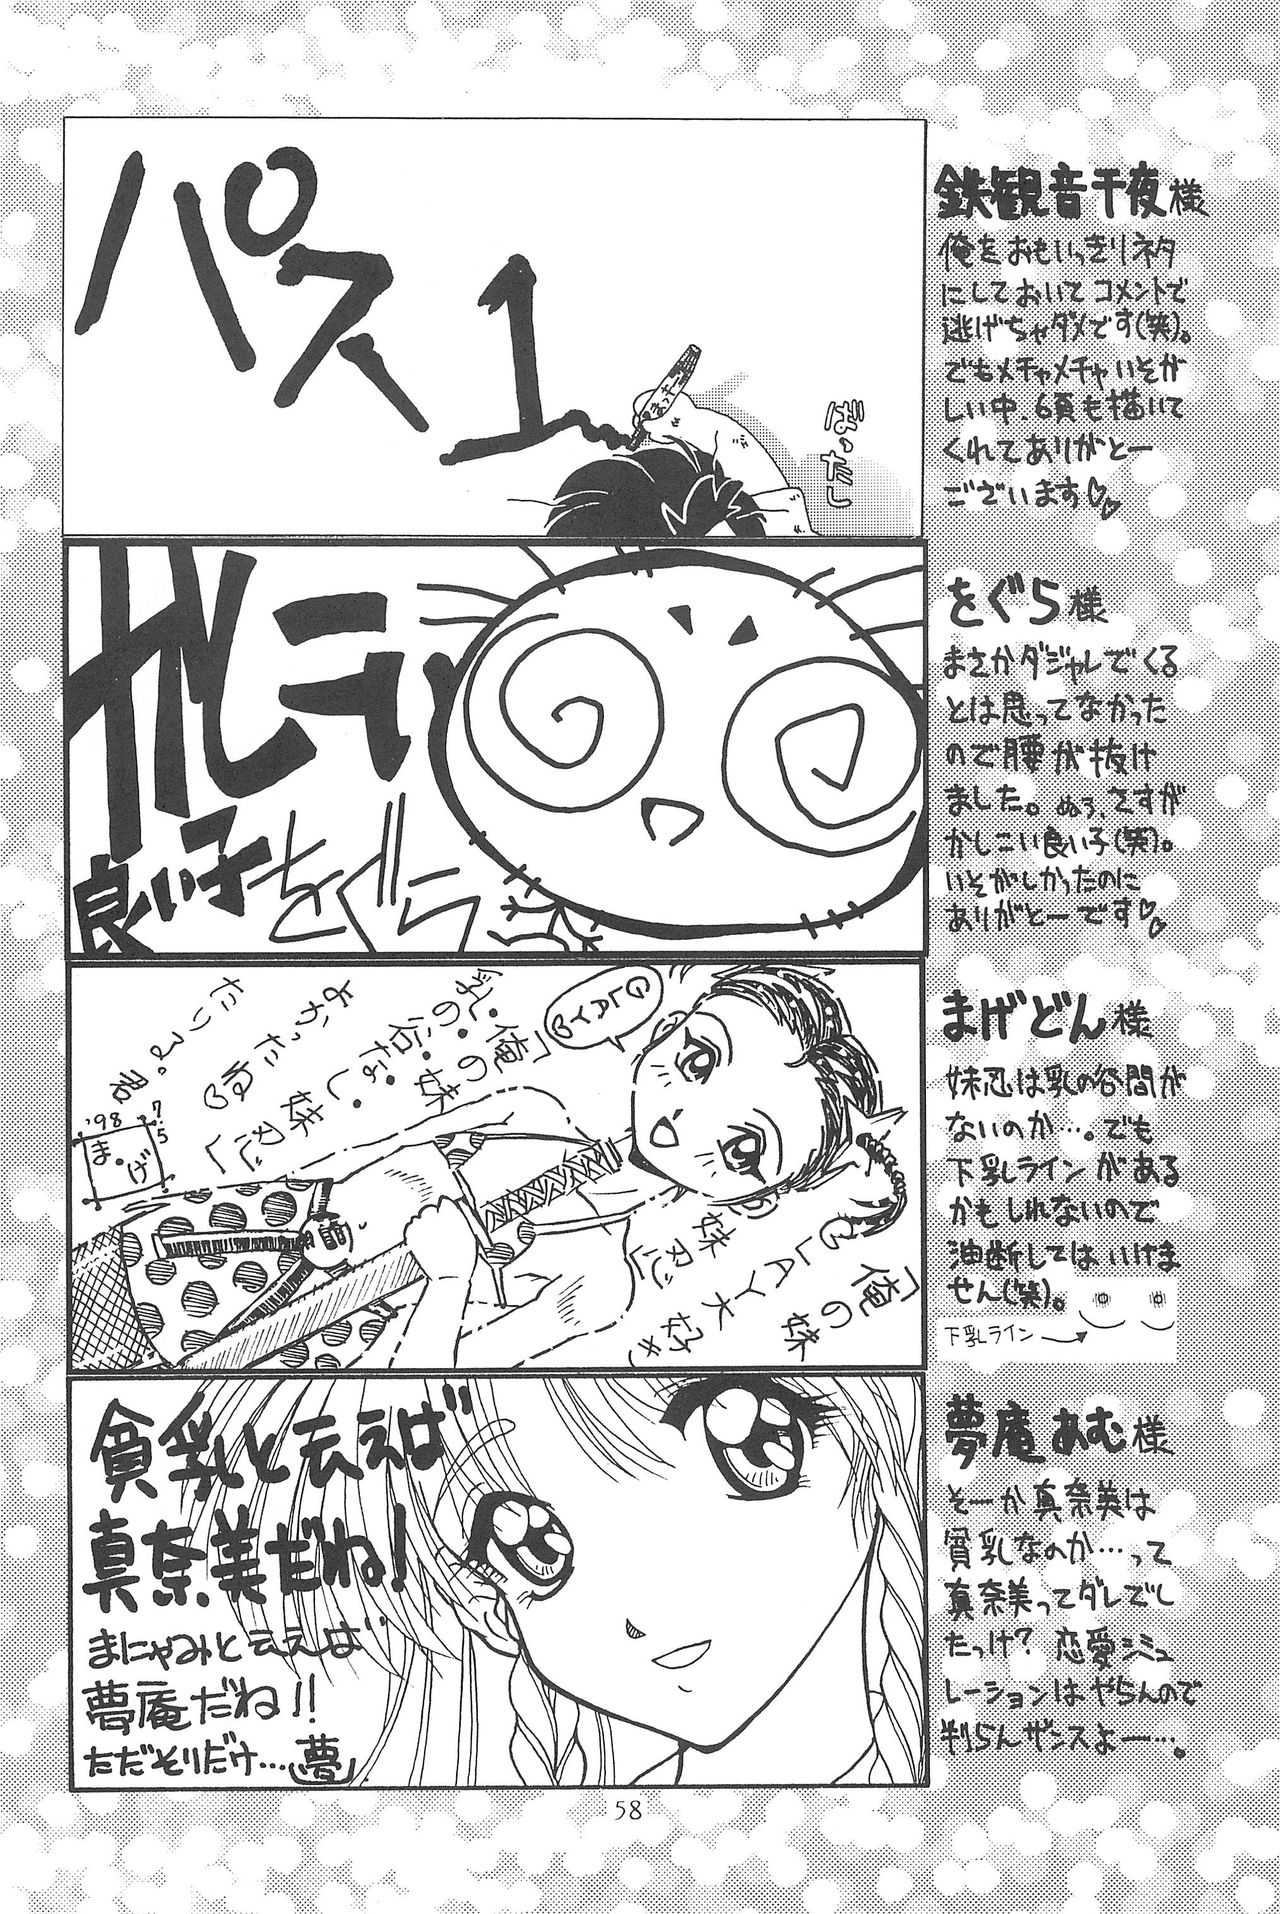 パス1
ばったし
鉄観音千夜様
俺をおもいっきりネタ
にしておいてコメントで
逃げちゃダメです(笑)。
でもメチャメチャいそが
しい中、6頁も描いて
くれてありがとー
ございます♡♡
良い子をぐら
をぐら様
まさかダジャレでくる
とは思ってなかった
ので腰が抜け
ました。ぬう、さすが
かしこい良い子(笑)。
いそがしかったのに
ありがとーです♡♡
GLAY♡
「俺の妹
乳・俺の妹
乳の谷なし
よかったね♡
たつ
'98
7.5
ま・げ
「俺の妹
GLAY大好き
妹忍」
まげどん様
妹忍は乳の谷間が
ないのか…。でも
下乳ラインがある
かもしれないので
油断してはいけま
せん(笑)。
下乳ライン→
貧乳と云えば
真奈美だね!
まにゃみと云えば
夢庵だね!!
ただそりだけ…夢
夢庵あむ様
そーか真奈美は
貧乳なのか…って
真奈美ってダレでし
たっけ?恋愛シミュ
レーションはやらんので
判らんザンスよー…。
58